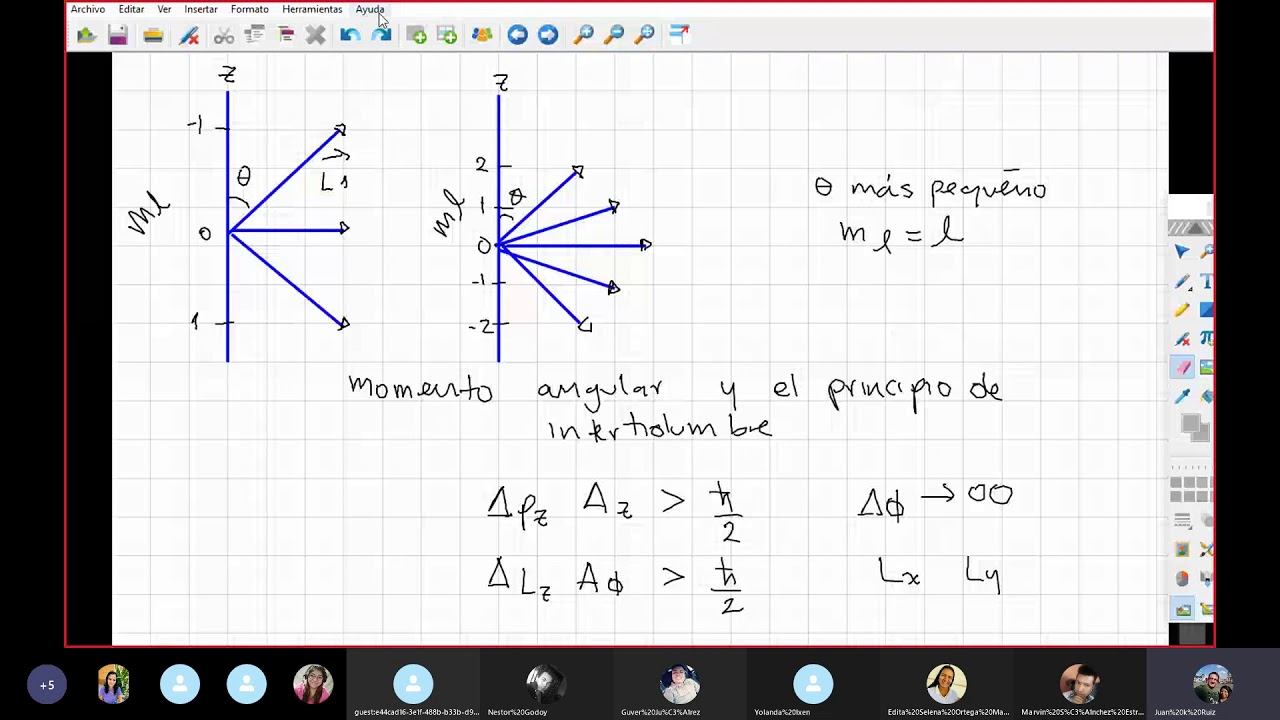 Archivo Editar Ver Insertar Formato Herramientas Ayuda
z
-1
θ
L s
Ml
0
1
z
2
1
θ
Ml
0
-1
-2
θ más pequeño
m l = l
momento angular y el principio de
intertiolumbre
Δpz Δz > ħ/2
Δϕ → ∞
ΔLz Δϕ > ħ/2
Lx Ly
+5
guest:e44cad16-3e1f-488b-b33b-d9...
Nestor%20Godoy
Guver%20Ju%C3%A1rez
Yolanda%20Ixen
Edita%20Selena%20Ortega%20Ma...
Marvin%20S%C3%A1nchez%20Estr...
Juan%20k%20Ruiz